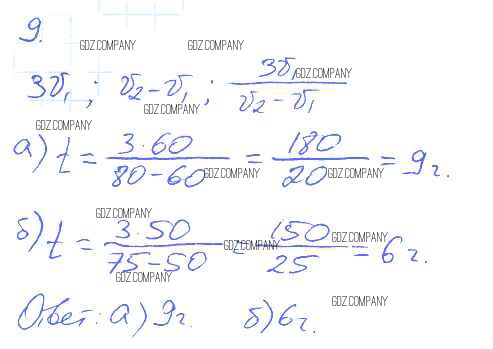 9.
GDZ.COMPANY GDZ.COMPANY
3v₁ ; v₂ - v₁ ; 3v₁ / (v₂ - v₁)
GDZ.COMPANY
GDZ.COMPANY
GDZ.COMPANY
а) t = 3·60 / (80 - 60) = 180 / 20 = 9 ч.
GDZ.COMPANY GDZ.COMPANY
GDZ.COMPANY
б) t = 3·50 / (75 - 50) = 150 / 25 = 6 ч.
GDZ.COMPANY GDZ.COMPANY
GDZ.COMPANY
GDZ.COMPANY
Ответ: а) 9 ч. б) 6 ч.